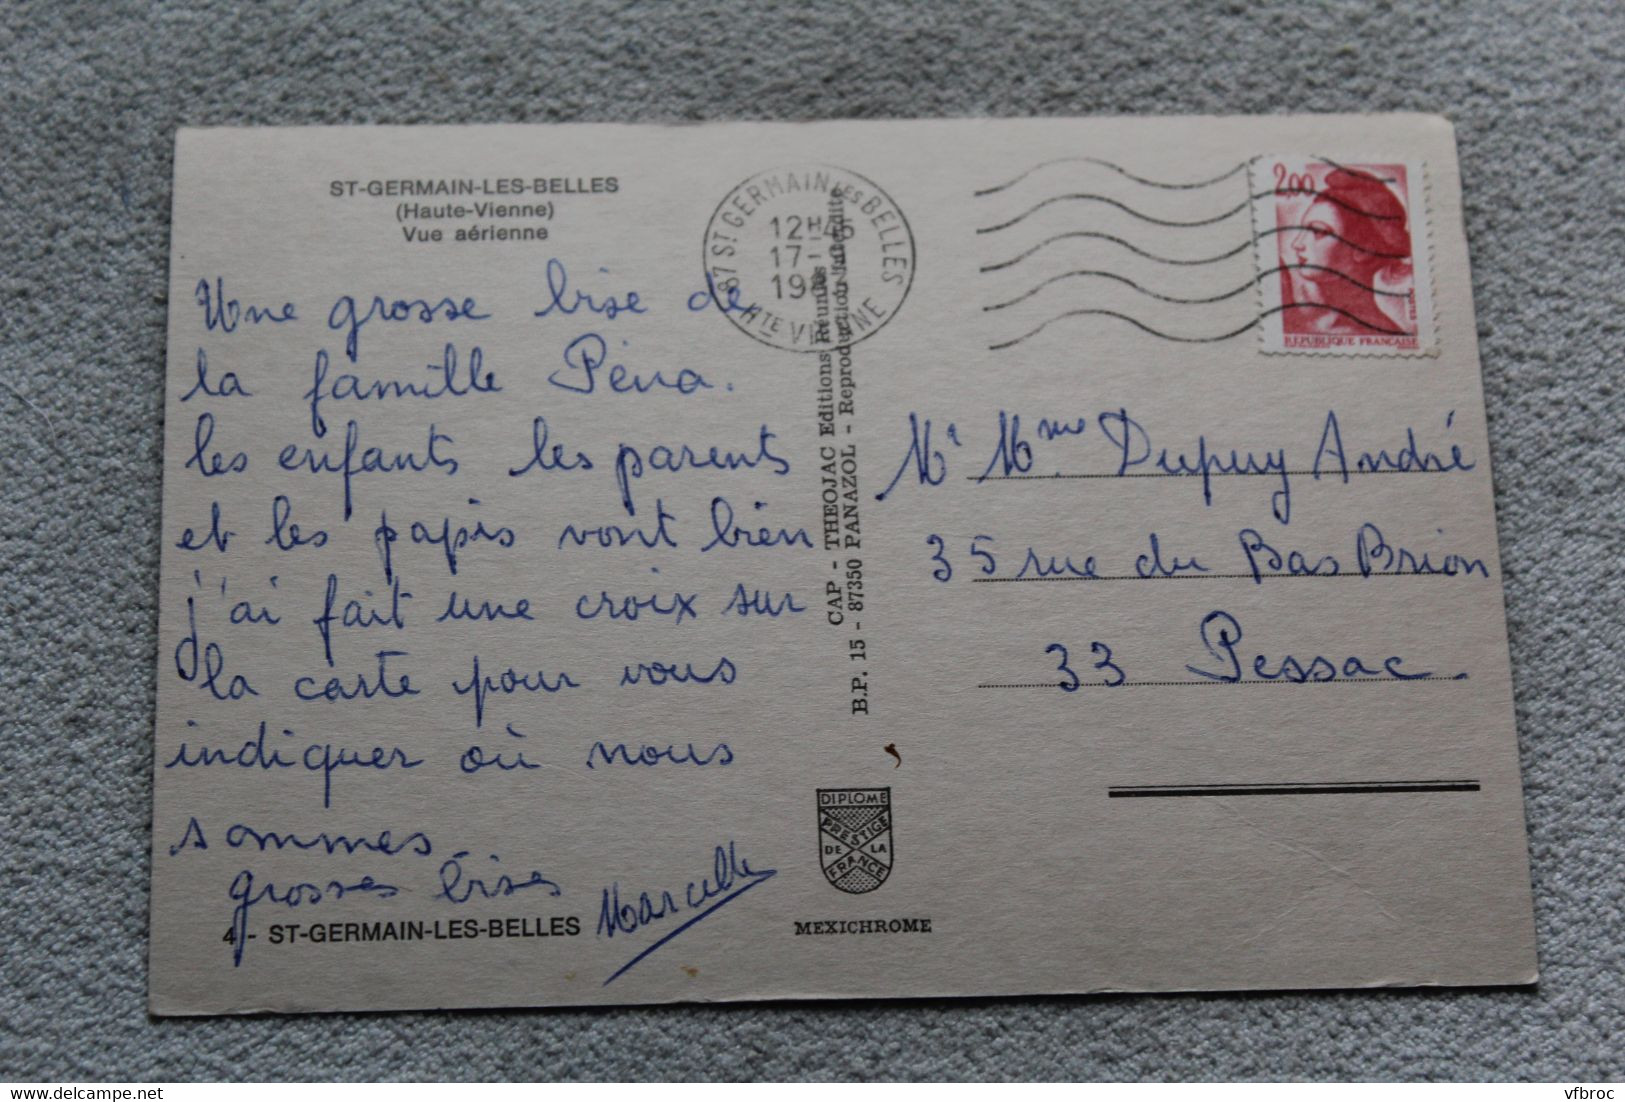 ST-GERMAIN-LES-BELLES
(Haute-Vienne)
Vue aérienne
Une grosse bise de
la famille Péna.
les enfants les parents
et les papis vont bien
j'ai fait une croix sur
la carte pour vous
indiquer où nous
sommes
grosses bises
Marcelle
4 - ST-GERMAIN-LES-BELLES
87 ST GERMAIN LES BELLES
12H
17-
19
HTE VIENNE
CAP - THEOJAC Editions Réunies
B.P. 15 - 87350 PANAZOL - Reproduction Interdite
DIPLOME
PRESTIGE
DE LA
FRANCE
MEXICHROME
2,00
POSTES
REPUBLIQUE FRANÇAISE
Mr Mme Dupuy André
35 rue du Bas Brion
33 Pessac.
vfbroc
delcampe.net